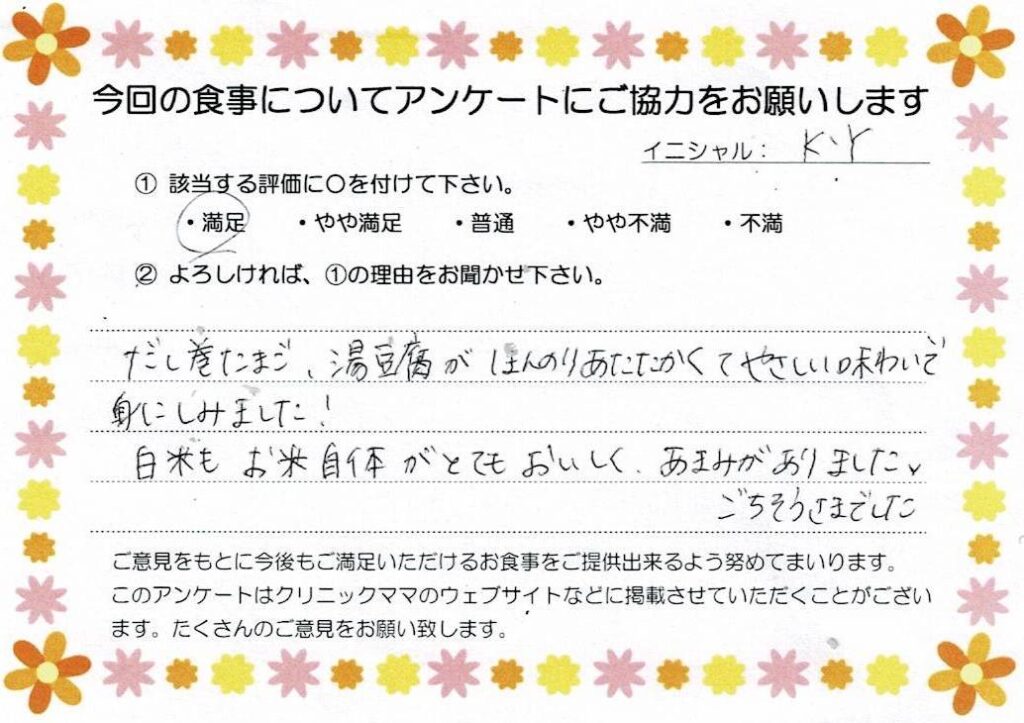 今回の食事についてアンケートにご協力をお願いします
イニシャル： K・Y
① 該当する評価に〇を付けて下さい。
・満足 ・やや満足 ・普通 ・やや不満 ・不満
② よろしければ、①の理由をお聞かせ下さい。
だし巻たまご、湯豆腐が ほんのりあたたかくて やさしい味わいで
身にしみました！
白米も お米自体 がとても おいしく、あまみがありました。
ごちそうさまでした
ご意見をもとに今後もご満足いただけるお食事をご提供出来るよう努めてまいります。
このアンケートはクリニックママのウェブサイトなどに掲載させていただくことがござい
ます。たくさんのご意見をお願い致します。